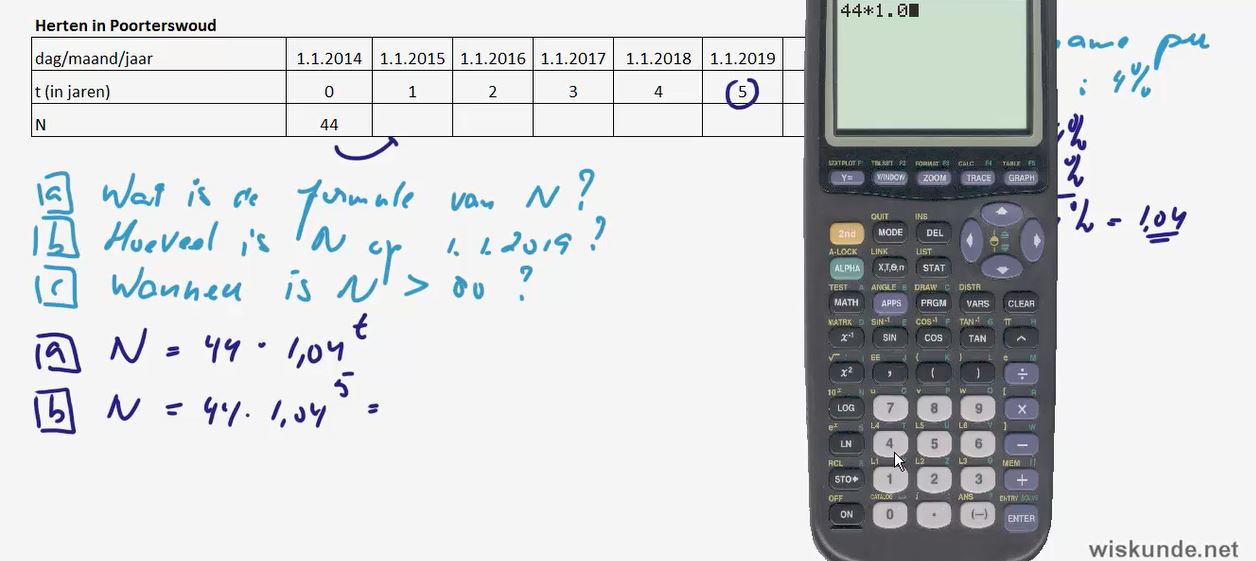 Herten in Poorterswoud
dag/maand/jaar 1.1.2014 1.1.2015 1.1.2016 1.1.2017 1.1.2018 1.1.2019
t (in jaren) 0 1 2 3 4 5
N 44
ame per
: 4%
%
%
% = 1,04
a Wat is de formule van N?
b Hoeveel is N op 1.1.2019?
c Wanneer is N > 80?
a N = 44 · 1,04^t
b N = 44 · 1,04^5 =
44*1.0
STATPLOT F1 TBLSET F2 FORMAT F3 CALC F4 TABLE F5
Y= WINDOW ZOOM TRACE GRAPH
QUIT INS
2nd MODE DEL
A-LOCK LINK LIST
ALPHA X,T,Θ,n STAT
TEST A ANGLE B DRAW C DISTR
MATH APPS PRGM VARS CLEAR
MATRX D SIN⁻¹ E COS⁻¹ F TAN⁻¹ G π H
x⁻¹ SIN COS TAN ^
√ I EE J { K } L e M
x² , ( ) ÷
10ˣ N u O v P w Q [ R
LOG 7 8 9 ×
eˣ S L4 T L5 U L6 V ] W
LN 4 5 6 −
RCL X L1 Y L2 Z L3 θ MEM "
STO▸ 1 2 3 +
OFF CATALOG i : ANS ? ENTRY SOLVE
ON 0 . (−) ENTER
wiskunde.net